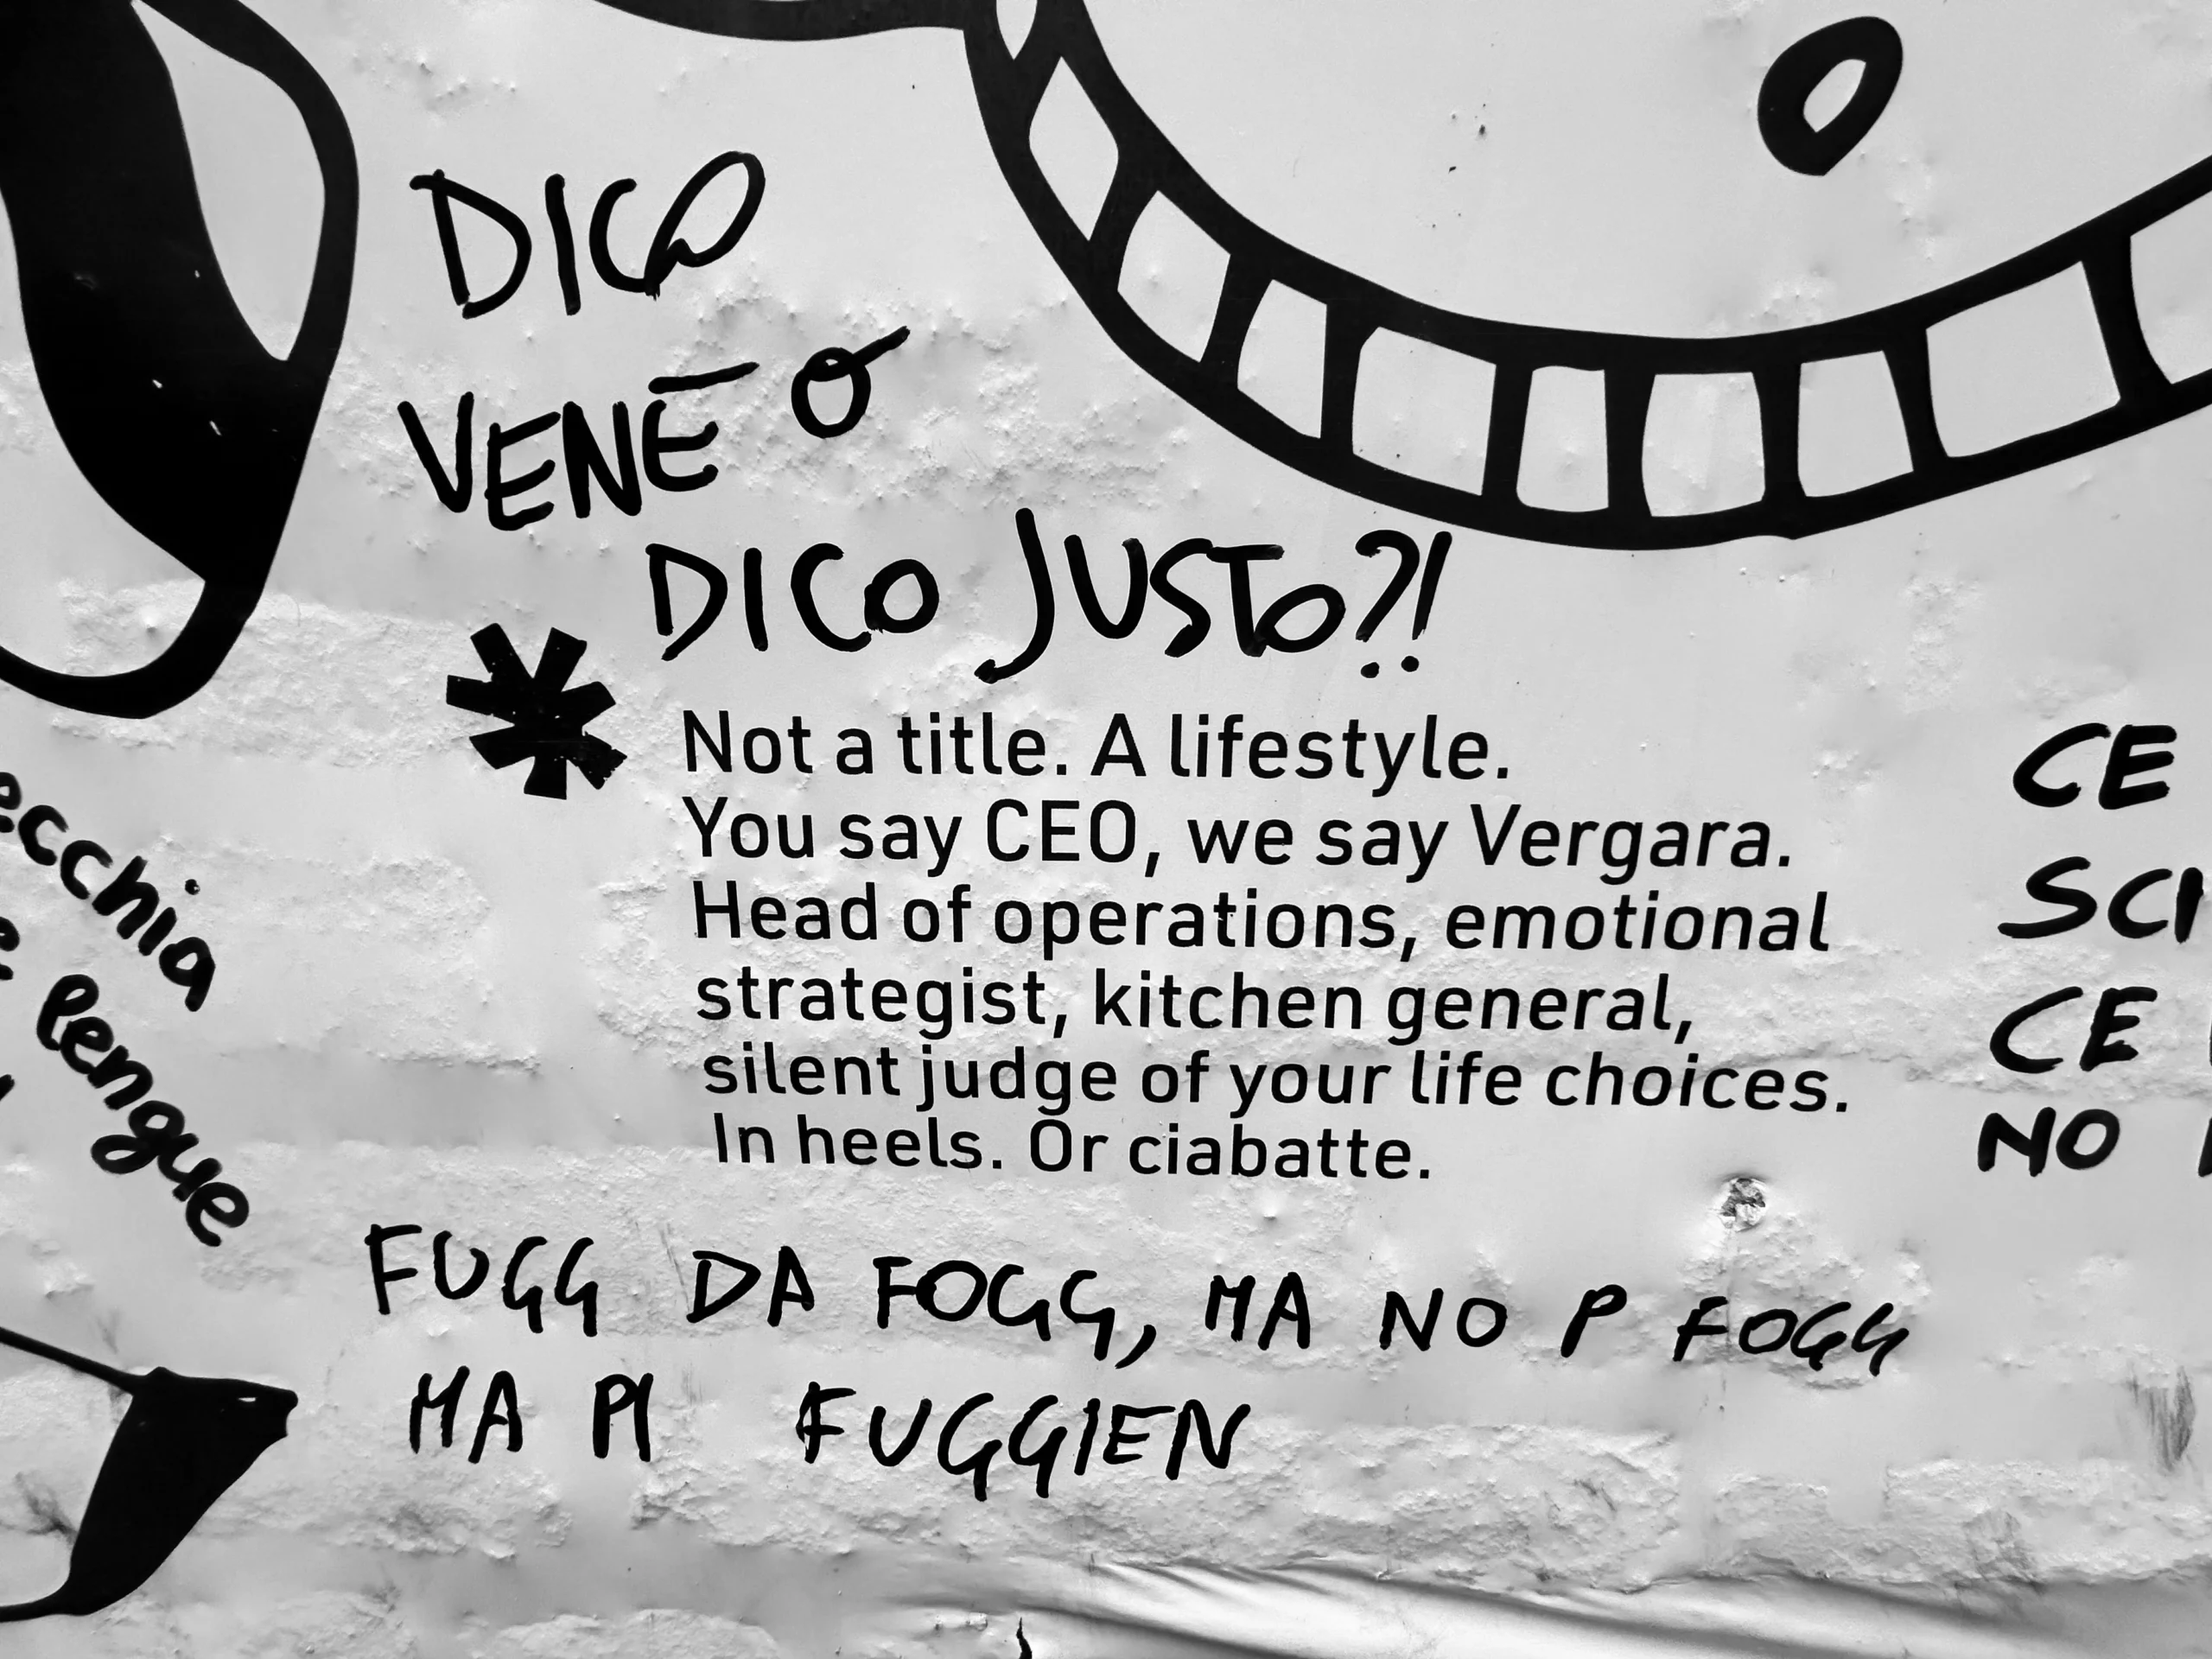 DICO
VENĒ O
DICO JUSTO?!
* Not a title. A lifestyle.
You say CEO, we say Vergara.
Head of operations, emotional
strategist, kitchen general,
silent judge of your life choices.
In heels. Or ciabatte.
FUGG DA FOGG, MA NO P FOGG
MA PI FUGGIEN
ecchia
lengue
CE
SCI
CE
NO